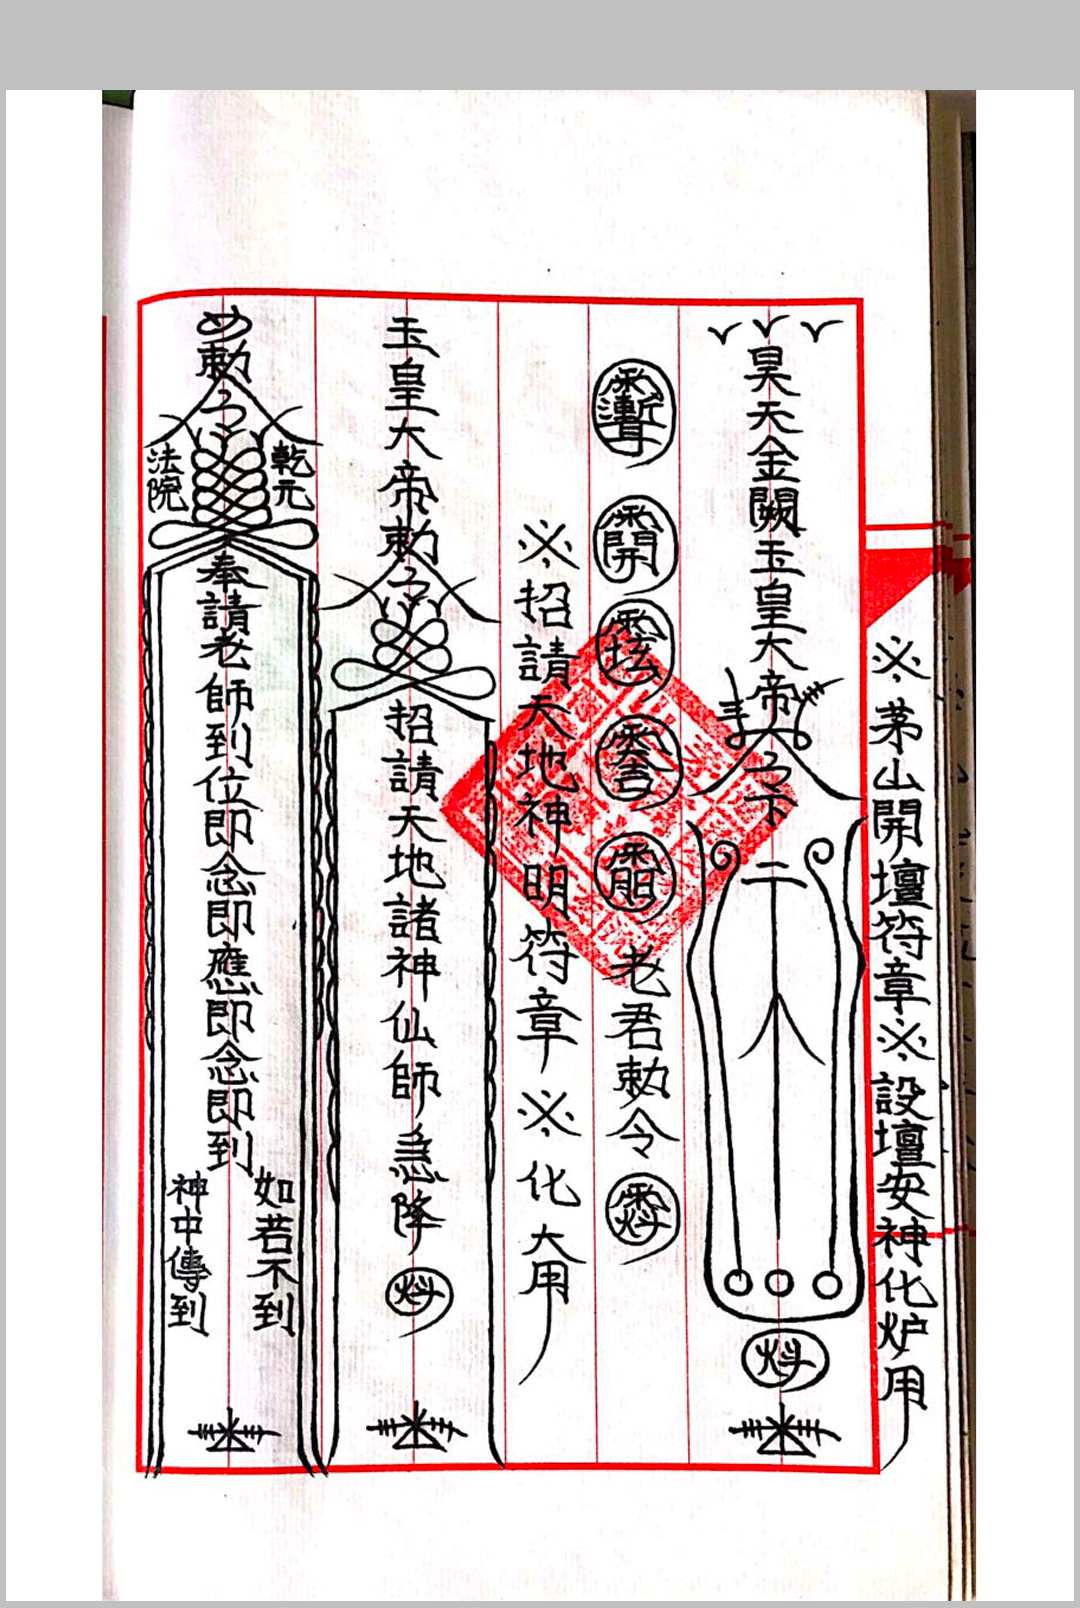 ※茅山開壇符章※設壇安神化炉用
昊天金闕玉皇大帝
下
老君勅令
※招請天地神明符章※化大用
玉皇大帝勅令
招請天地諸神仙師急降
勅令
乾元
法院
奉請老師到位即念即應即念即到
如若不到
神中傳到